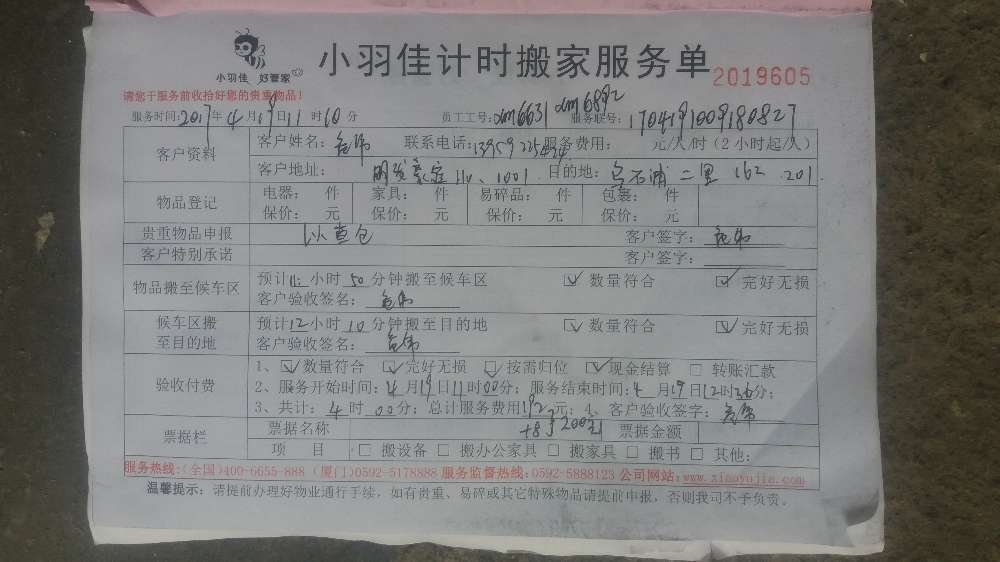 小羽佳 好管家
小羽佳计时搬家服务单 2019605
请您于服务前收拾好您的贵重物品！
服务时间：2017年4月19日11时10分 员工工号：xm6631 xm6892 服务联号：170419100980827
客户资料 客户姓名： 联系电话：13959225424 服务费用： 元/人/时(2小时起/人)
客户地址：明发豪庭 1001 目的地：乌石浦二里 162 201
物品登记 电器： 件 家具： 件 易碎品： 件 包裹： 件
保价： 元 保价： 元 保价： 元 保价： 元
贵重物品申报 以查包 客户签字：
客户特别承诺 客户签字：
物品搬至候车区 预计11小时50分钟搬至候车区 ☑数量符合 ☑完好无损
客户验收签名：
候车区搬至目的地 预计12小时10分钟搬至目的地 ☑数量符合 ☑完好无损
客户验收签名：
验收付费 1、☑数量符合 ☑完好无损 ☑按需归位 ☑现金结算 □ 转账汇款
2、服务开始时间：4月19日11时00分；服务结束时间：4月19日12时36分；
3、共计：4时00分；总计服务费用192元；4、客户验收签字：
+8 200元
票据栏 票据名称 票据金额
项 目 □ 搬设备 □ 搬办公家具 □ 搬家具 □ 搬书 □ 其他：
服务热线：(全国)400-6655-888 (厦门)0592-5178888 服务监督热线：0592-5888123 公司网站：www.xiaoyujia.com
温馨提示：请提前办理好物业通行手续，如有贵重、易碎或其它特殊物品请提前申报，否则我司不予负责。